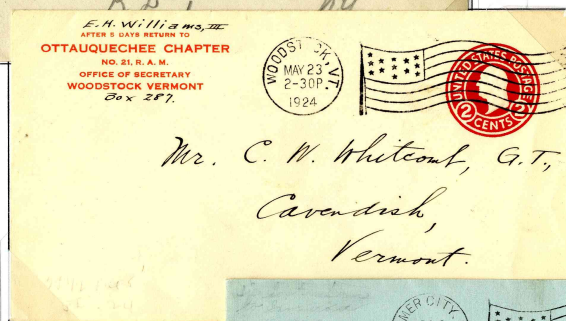 E. H. Williams, III
AFTER 5 DAYS RETURN TO
OTTAUQUECHEE CHAPTER
NO. 21, R. A. M.
OFFICE OF SECRETARY
WOODSTOCK VERMONT
Box 287.
WOODSTOCK, VT.
MAY 23
2-30P.
1924
UNITED STATES POSTAGE
2 CENTS 2
Mr. C. W. Whitcomb, G.T.,
Cavendish,
Vermont.
MER CITY